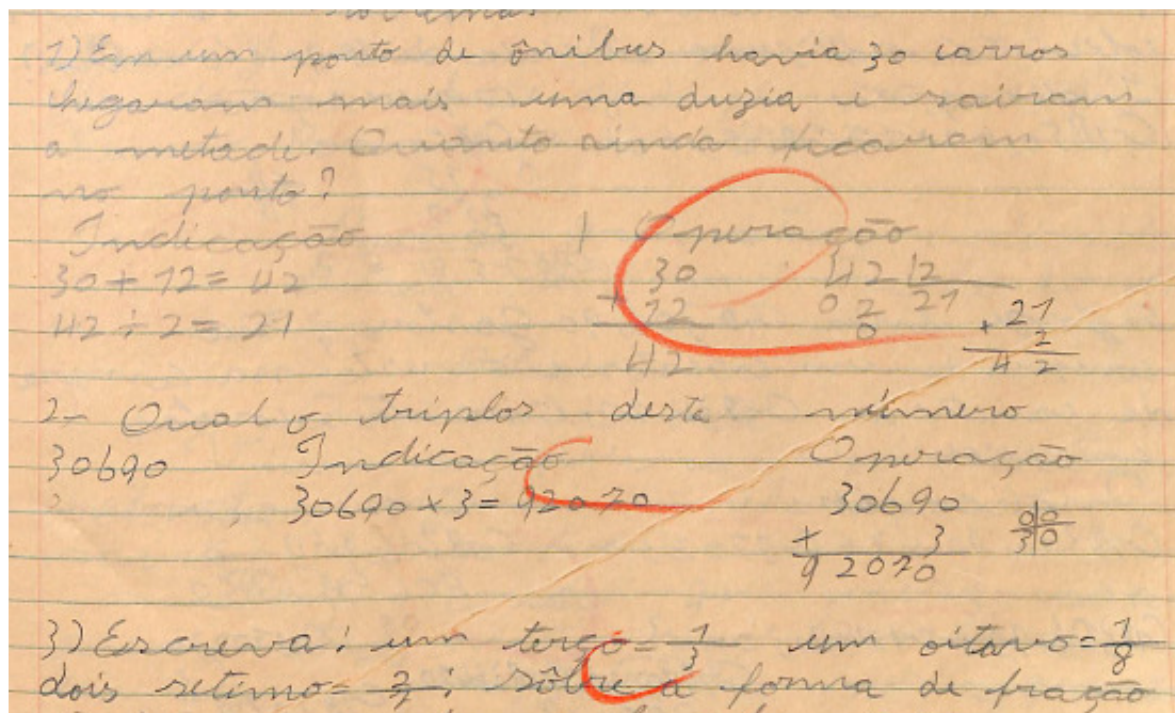 Problemas
1) Em um ponto de ônibus havia 30 carros
chegaram mais uma duzia e sairam
a metade. Quanto ainda ficaram
no ponto?
Indicação | Operação
30 + 12 = 42 30 42 | 2
42 ÷ 2 = 21 + 12 02 21 21
42 0 × 2
42
2- Qual o triplos deste número
30690 Indicação Operação
30690 × 3 = 92070 30690
× 3
92070
00
30
3) Escreva: um terço = 1/3 um oitavo = 1/8
dois setimo = 2/7; sôbre a forma de fração